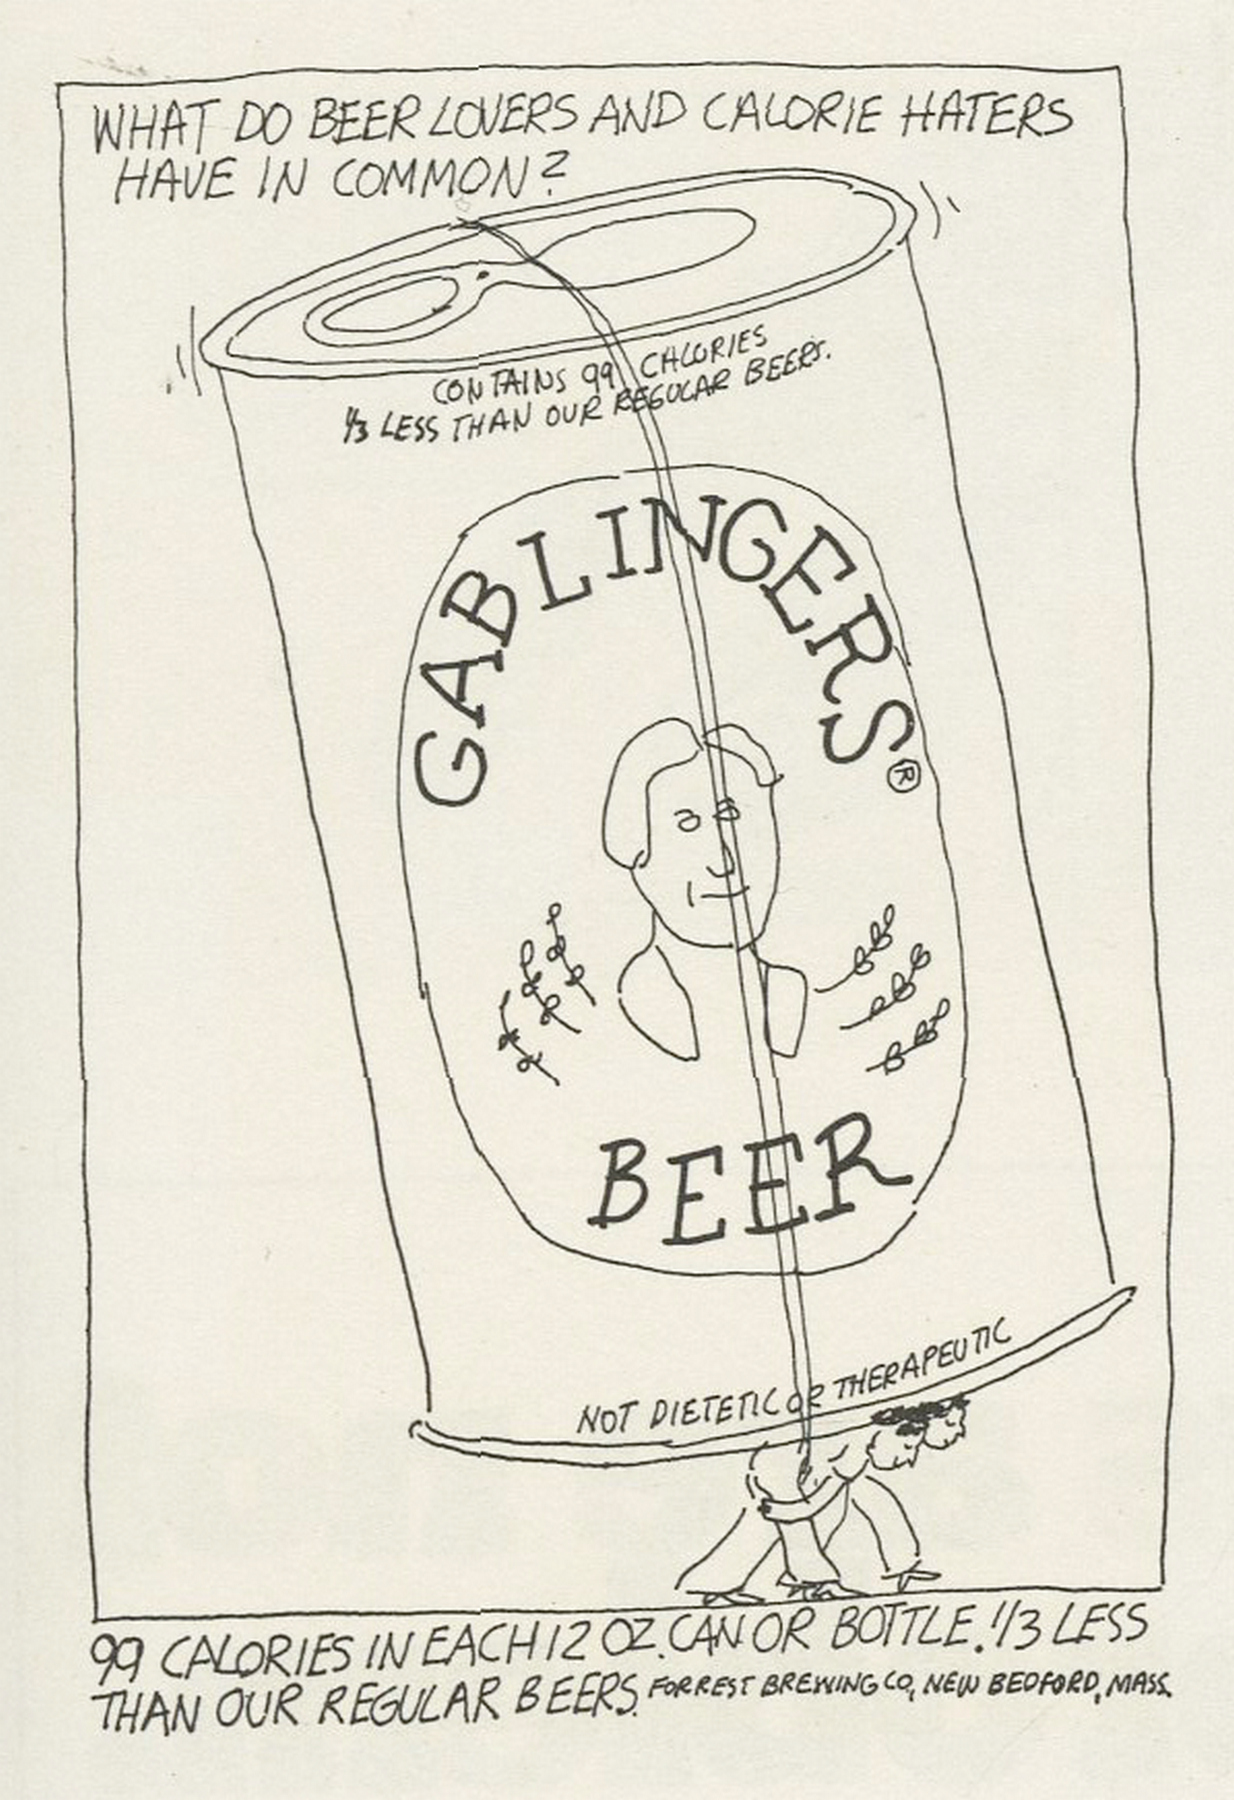 WHAT DO BEER LOVERS AND CALORIE HATERS
HAVE IN COMMON?
CONTAINS 99 CALORIES
1/3 LESS THAN OUR REGULAR BEERS.
GABLINGERS®
BEER
NOT DIETETIC OR THERAPEUTIC
99 CALORIES IN EACH 12 OZ. CAN OR BOTTLE. 1/3 LESS
THAN OUR REGULAR BEERS. FORREST BREWING CO, NEW BEDFORD, MASS.